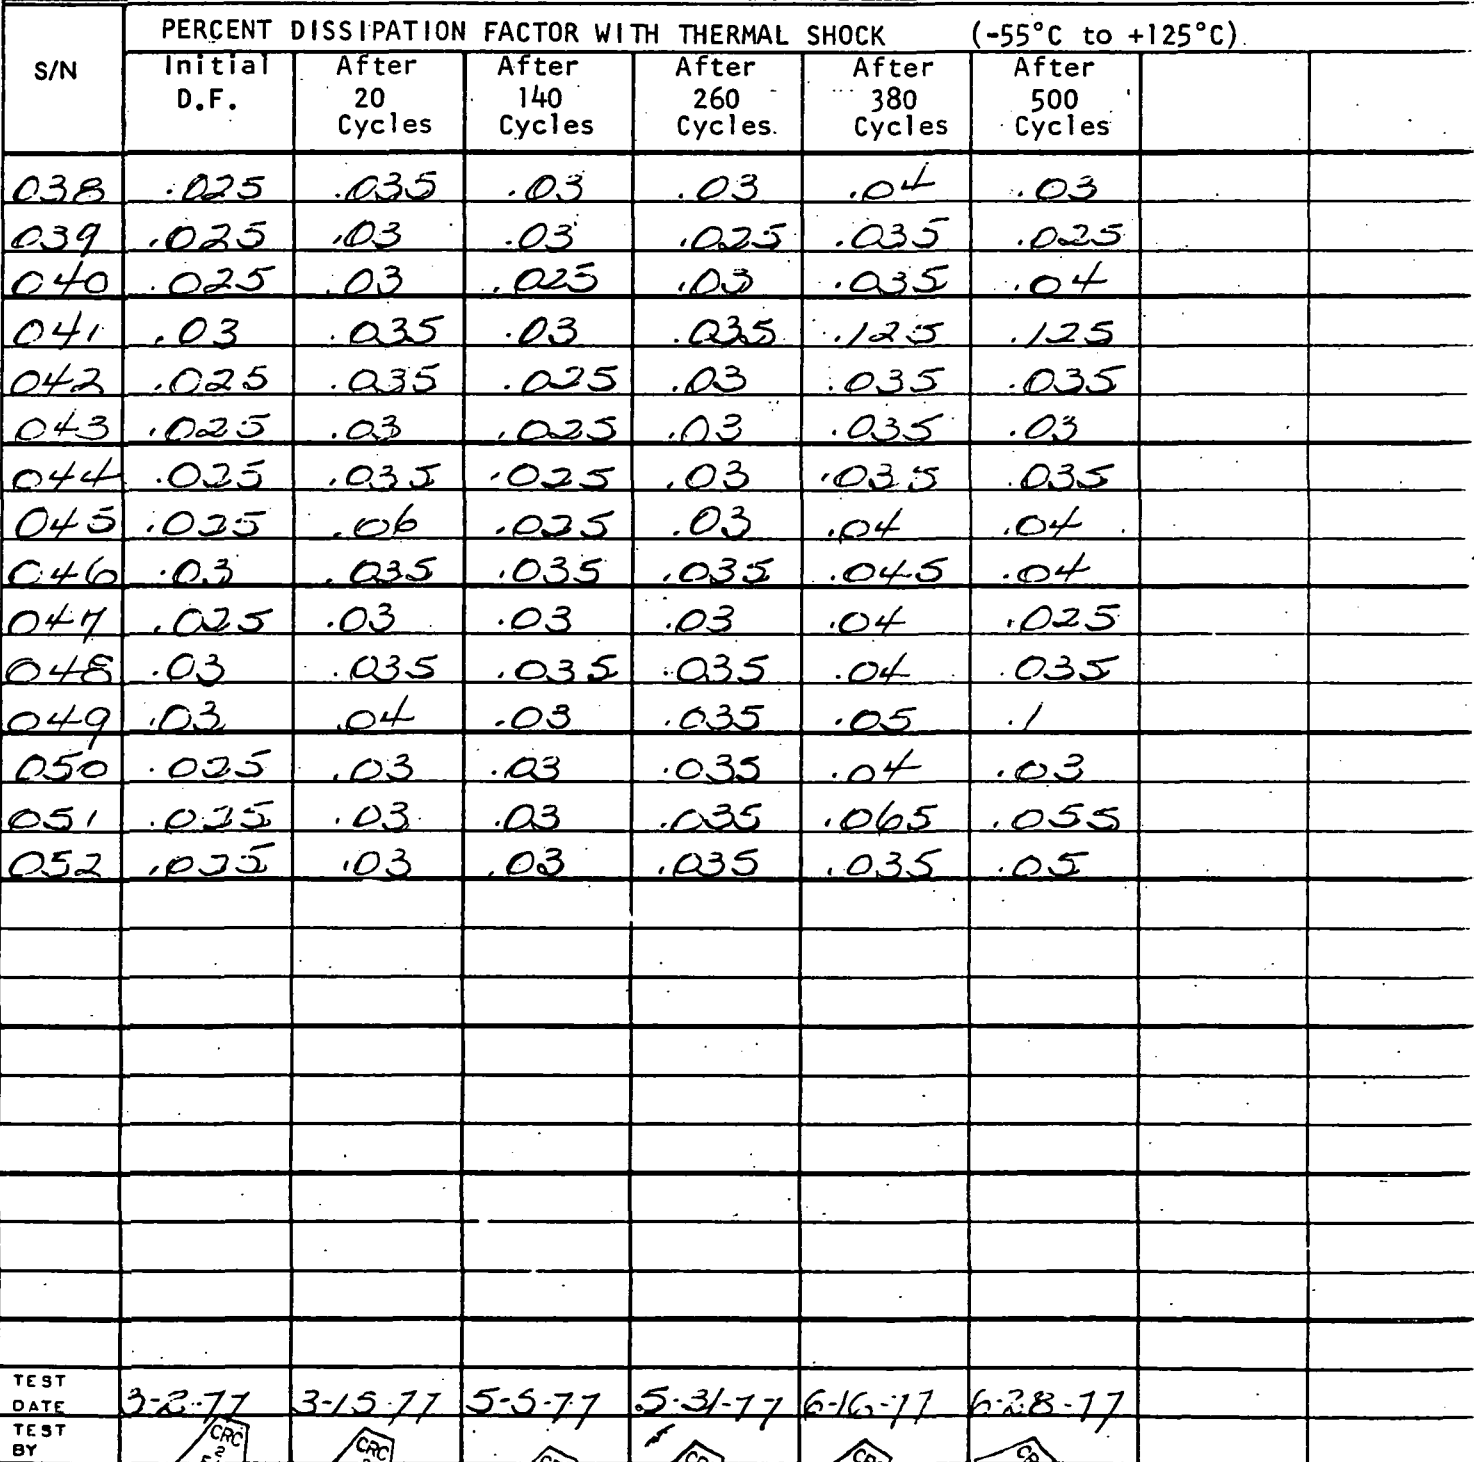 PERCENT DISSIPATION FACTOR WITH THERMAL SHOCK (-55°C to +125°C)
S/N Initial D.F. After 20 Cycles After 140 Cycles After 260 Cycles. After 380 Cycles After 500 Cycles
038 .025 .035 .03 .03 .04 .03
039 .025 .03 .03 .025 .035 .025
040 .025 .03 .025 .03 .035 .04
041 .03 .035 .03 .035 .125 .125
042 .025 .035 .025 .03 .035 .035
043 .025 .03 .025 .03 .035 .03
044 .025 .035 .025 .03 .035 .035
045 .025 .06 .025 .03 .04 .04
046 .03 .035 .035 .035 .045 .04
047 .025 .03 .03 .03 .04 .025
048 .03 .035 .035 .035 .04 .035
049 .03 .04 .03 .035 .05 .1
050 .025 .03 .03 .035 .04 .03
051 .025 .03 .03 .035 .065 .055
052 .025 .03 .03 .035 .035 .05
TEST DATE 3-2-77 3-15-77 5-5-77 5-31-77 6-16-77 6-28-77
TEST BY CRC 2 CRC